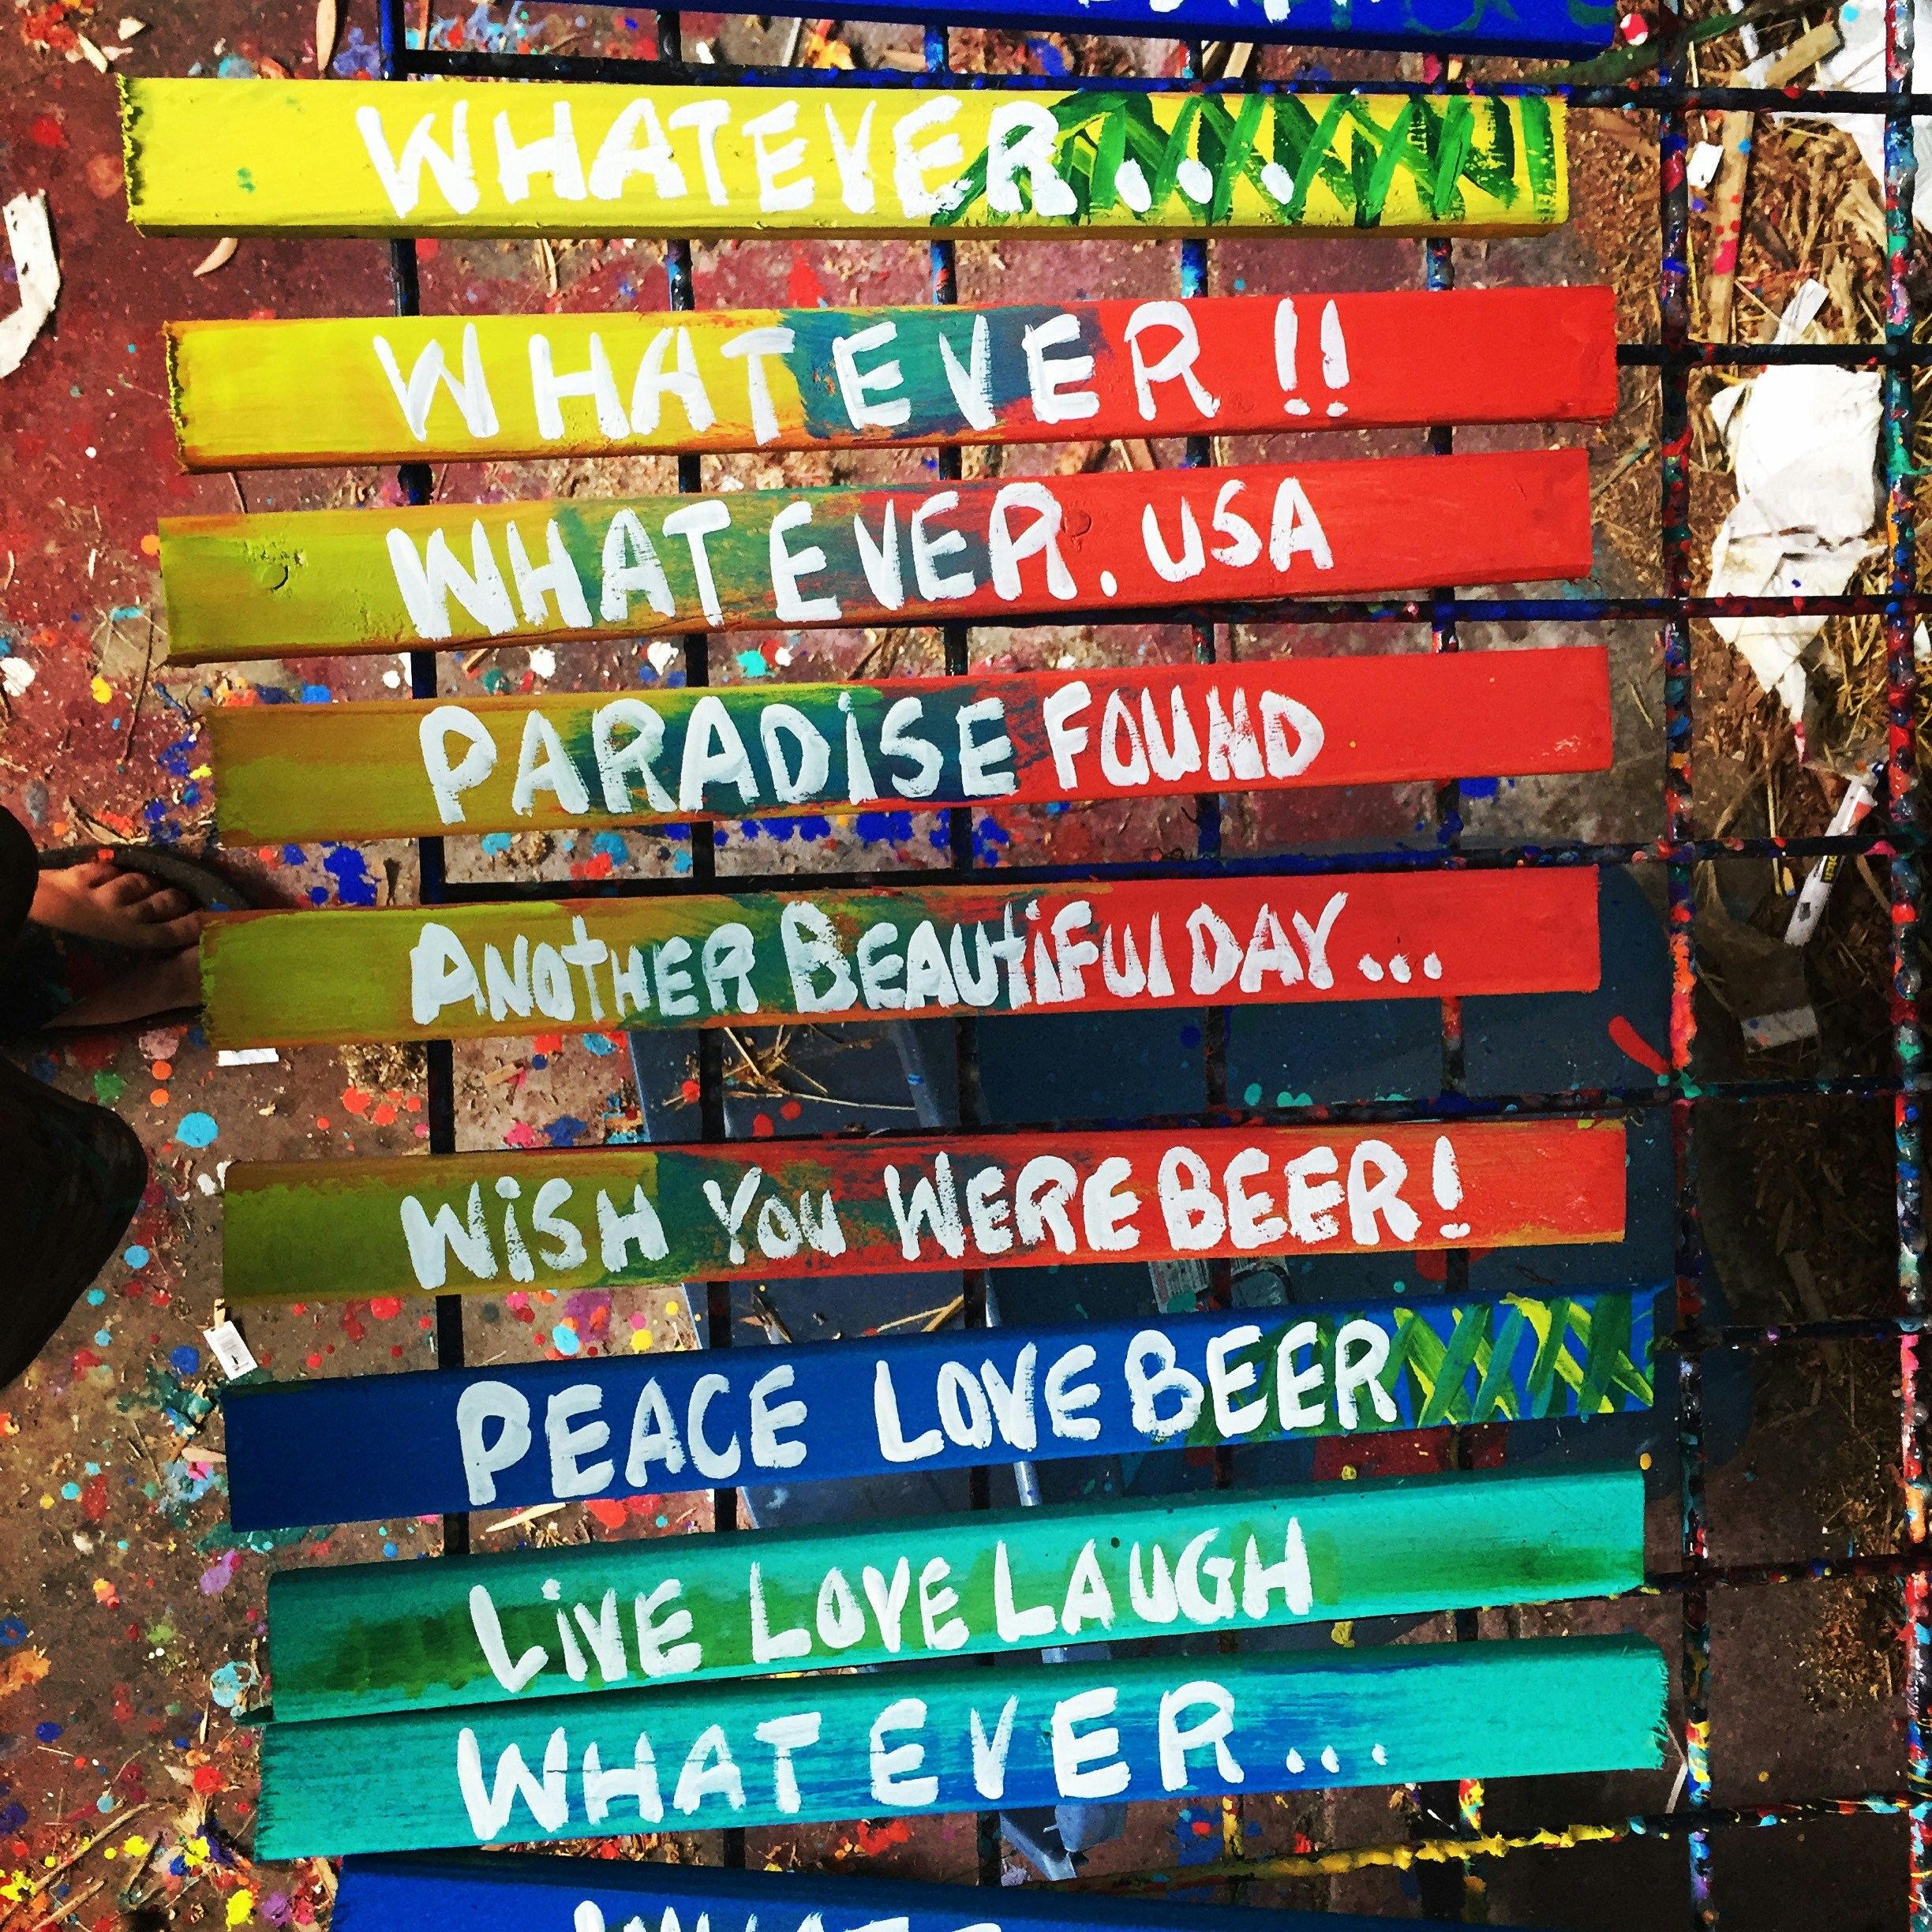 WHATEVER...
WHATEVER!!
WHATEVER.USA
PARADiSE FOUND
ANOtHER BEAUtiFUl DAY...
WiSH YOU WERE BEER!
PEACE LOVE BEER
LiVE LOVE LAUGH
WHATEVER...